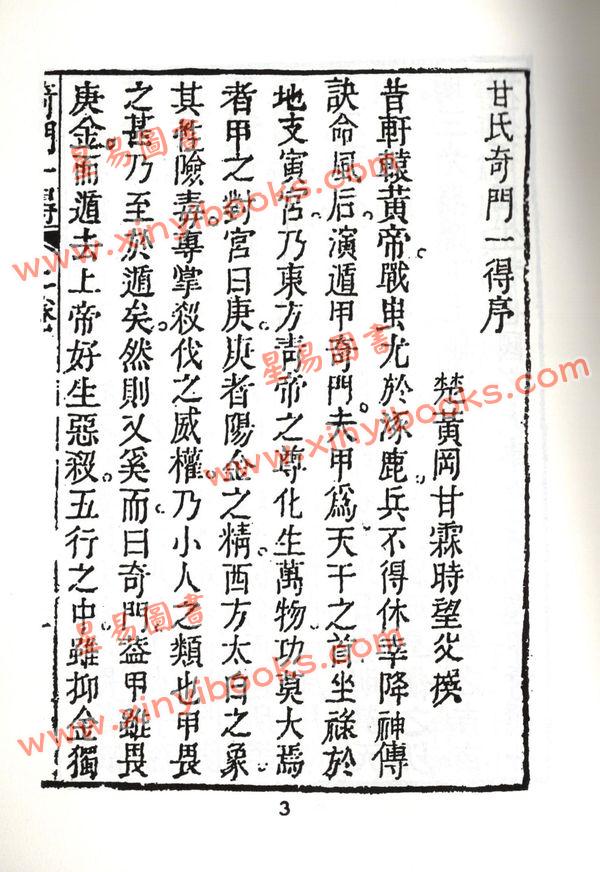 甘氏奇門一得序
楚黃岡甘霖時望父撰
昔軒轅黃帝戰蚩尤於涿鹿兵不得休幸降神傳
訣命風后演遁甲奇門夫甲爲天干之首坐祿於
地支寅宮乃東方青帝之尊化生萬物功莫大焉
者甲之對宮曰庚庚者陽金之精西方太白之象
其性險毒專掌殺伐之威權乃小人之類也甲畏
之甚乃至於遁矣然則又奚而曰奇門蓋甲雖畏
庚金而遁去上帝好生惡殺五行之中雖抑金獨
奇門一得
上卷
3
星易圖書
www.xinyibooks.com
星易圖書
www.xinyibooks.com
星易圖書
www.xinyibooks.com
星易圖書
www.xinyibooks.com